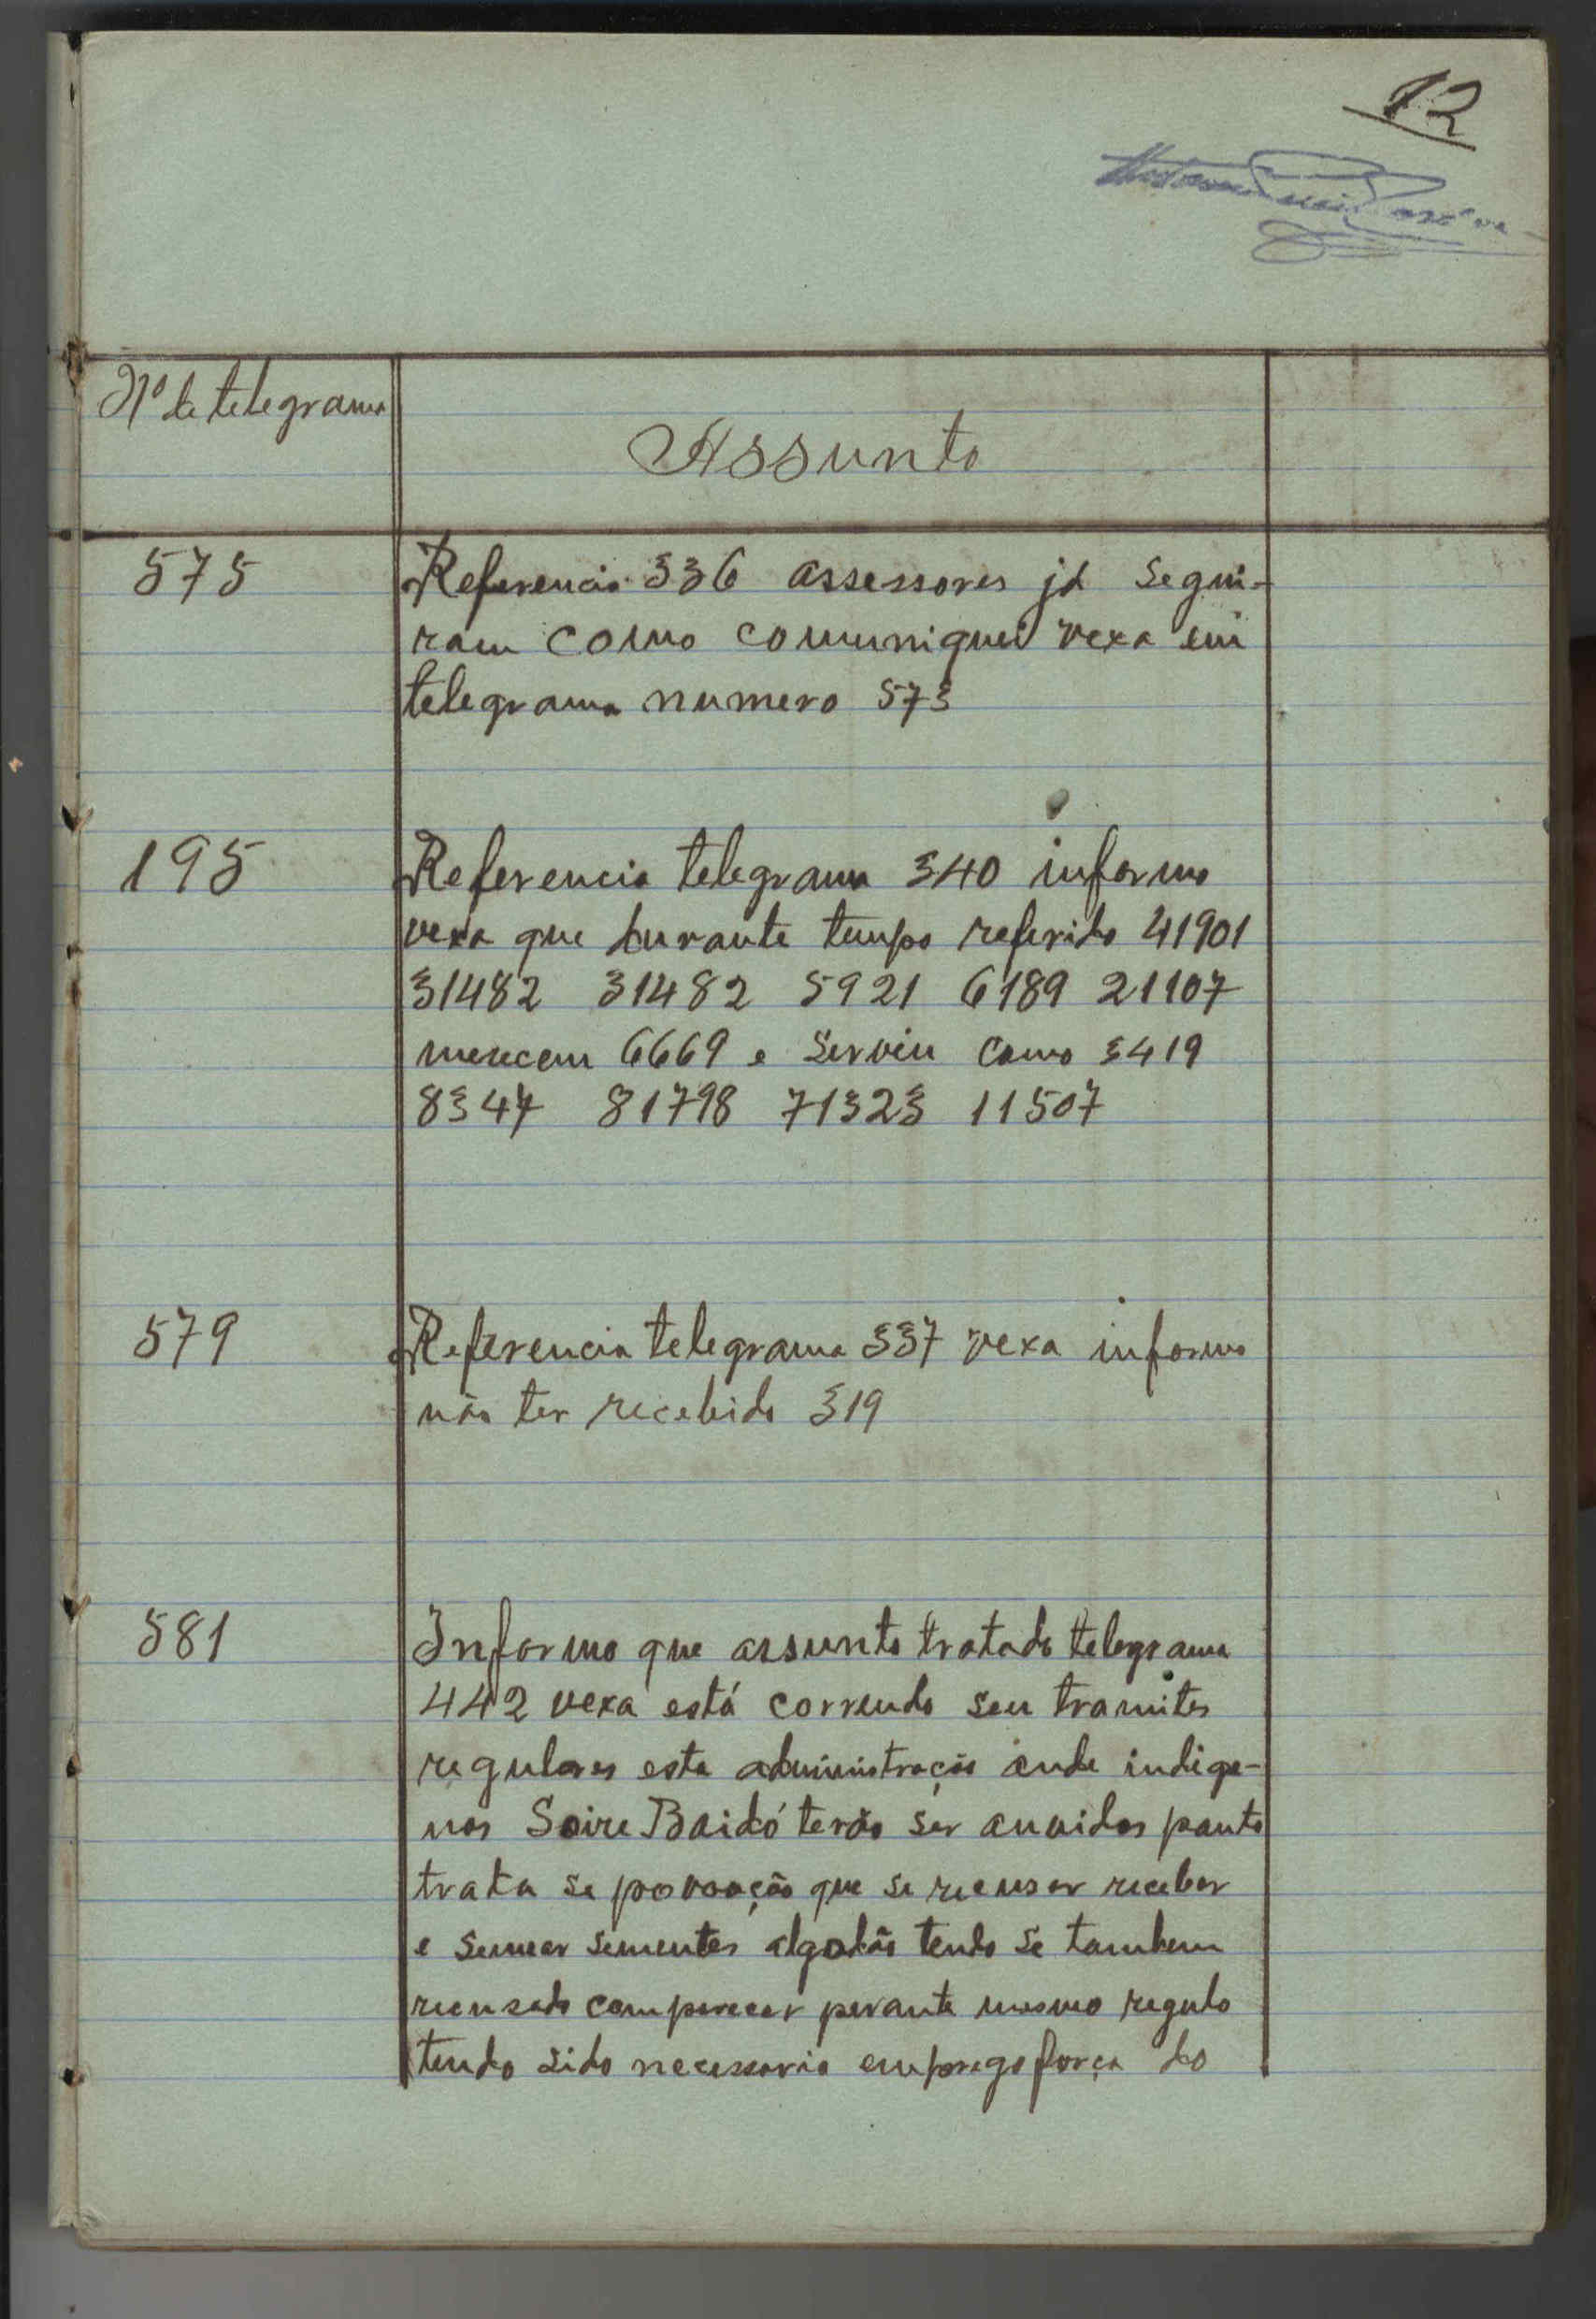 12
Nº de telegrama
Assunto
575
Referencia 336 assessores já segui-
ram como comuniquei vexa em
telegrama numero 573
195
Referencia telegrama 340 informo
vexa que durante tempo referido 41901
31482 31482 5921 6189 21107
merecem 6669 e serviu como 3419
8347 81798 71323 11507
579
Referencia telegrama 337 vexa informo
não ter recebido 319
581
Informo que assunto tratado telegrama
442 vexa está correndo seu tramites
regulares esta administração onde indige-
nas Soire Baidó terão ser ouvidos ponto
trata se povoação que se recusar receber
e semear sementes algodão tendo se tambem
recusado comparecer perante mesmo regulo
tendo sido necessario emprego força do